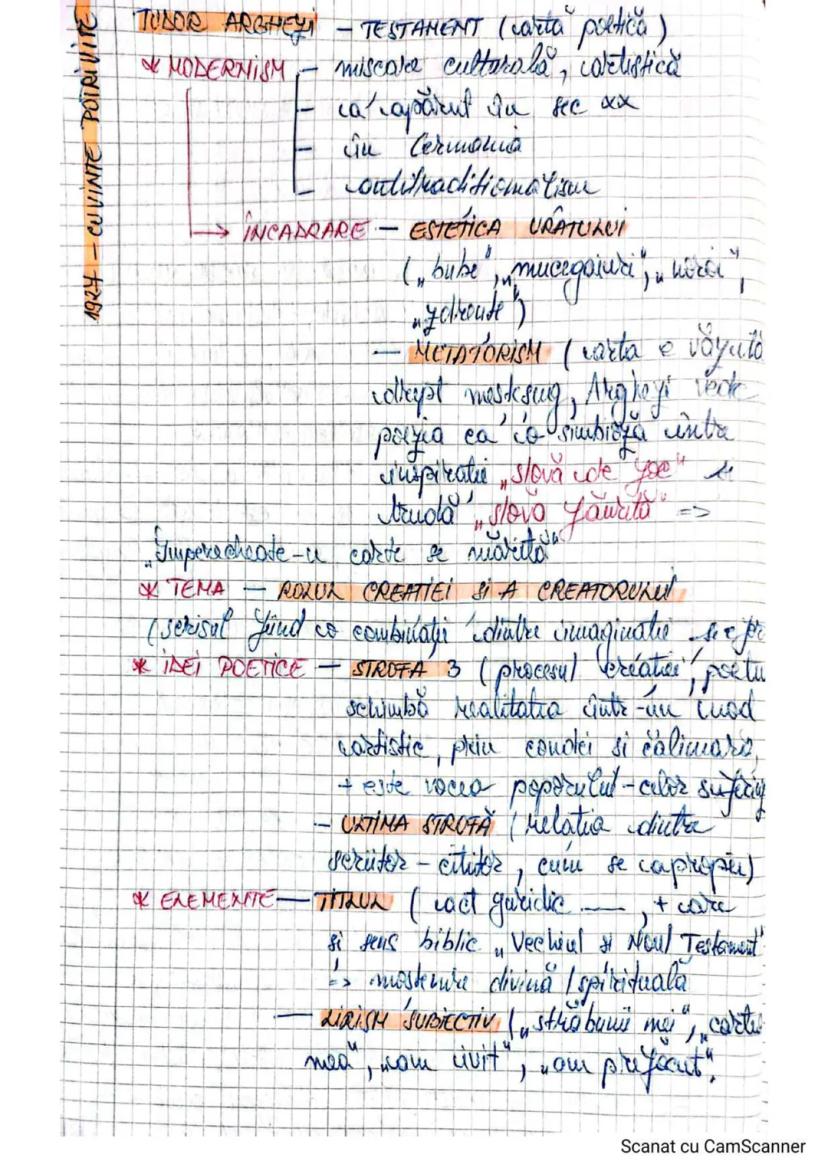 1927 - CUVINTE POTRIVITE
TUDOR ARGHEZI - TESTAMENT (artă poetică)
* MODERNISM - miscare culturală, artistică
- a apărut în sec XX
- în Germania
- antitraditionalism
→ ÎNCADRARE - ESTETICA URÂTULUI
(„bube", „mucegaiuri", „noroi",
„zdrente")
- METATORISM (arta e văzută
drept mestesug, Arghezi vede
poezia ca o simbioză între
inspiratie „slovă de foc" si
trudă „slovă făurită" =>
„Imperecheate-n carte se mărită"
* TEMA - ROLUL CREATIEI SI A CREATORULUI
(scrisul fiind o combinatie dintre imaginatie si efor
* IDEI POETICE - STROFA 3 (procesul creatiei, poetu
schimbă realitatea într-un mod
artistic, prin condei si călimara,
+ este vocea poporului - celor suferinz
- ULTIMA STROFĂ (relatia dintre
scriitor - cititor, cum se apropie)
* ELEMENTE - TITLUL (act juridic ___, + are
si sens biblic „Vechiul si Noul Testament"
=> mostenire divină / spirituală
- LIRISM SUBIECTIV („străbunii mei", „carte
mea", „am ivit", „am prefăcut".
Scanat cu CamScanner